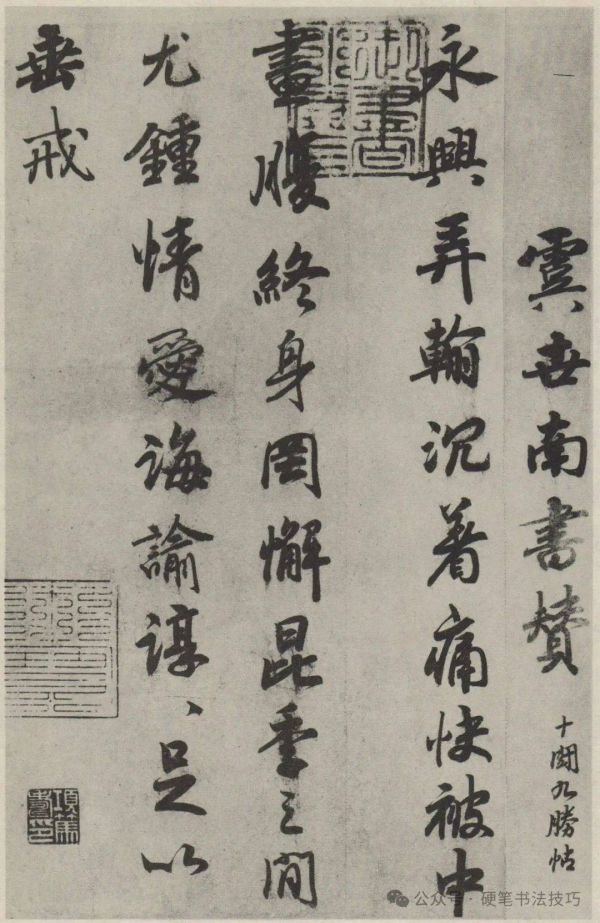 虞世南書賛
十鬭九勝帖
永興弄翰沉着痛快被中
畫腹終身罔懈昆季之間
尤鍾情愛誨諭諄、足以
垂戒
項篤壽印
公众号 · 硬笔书法技巧